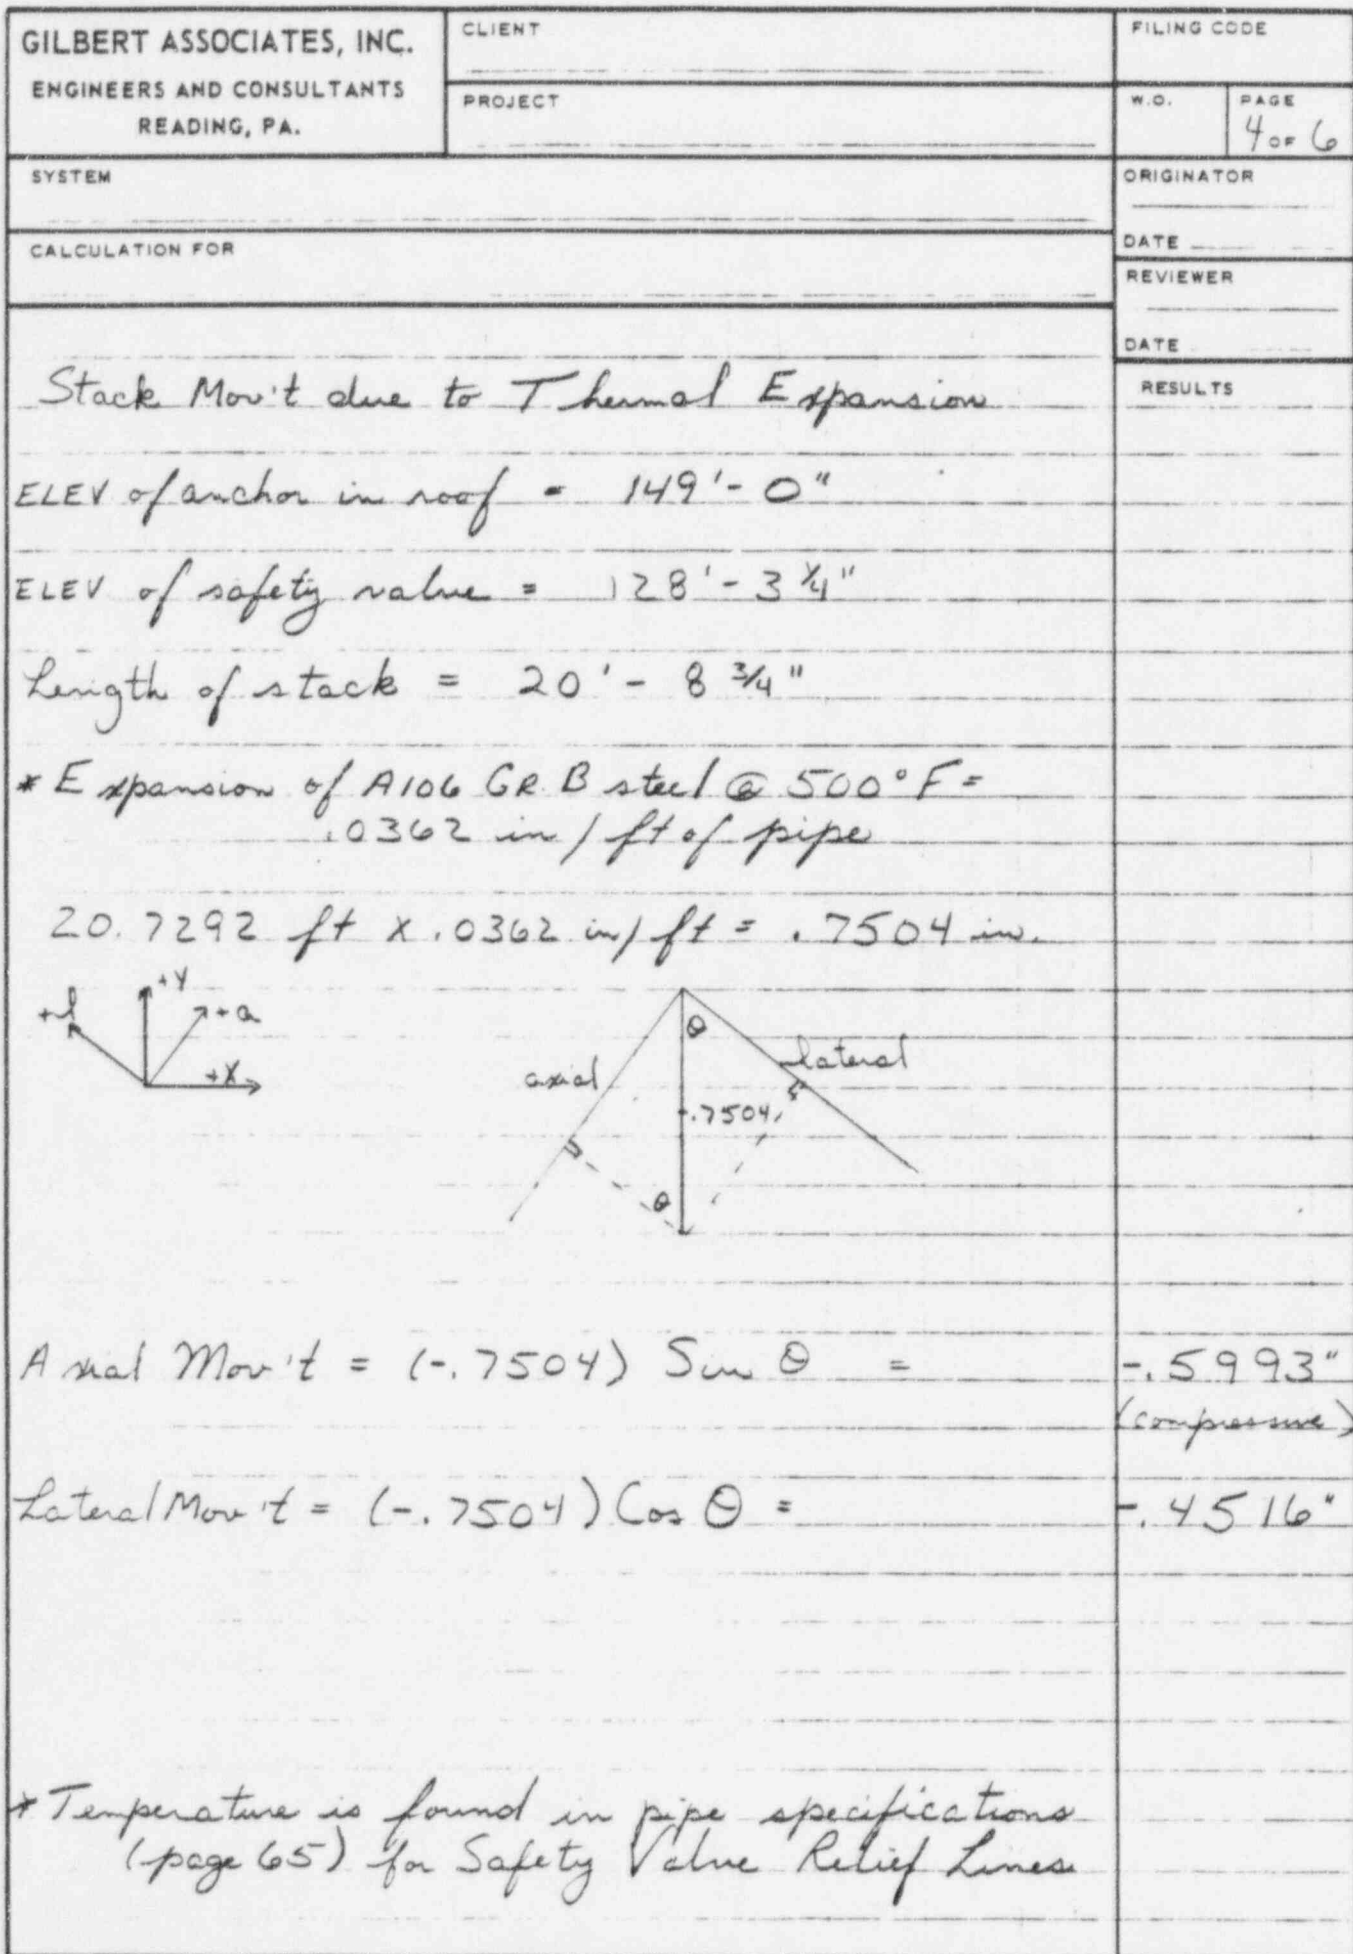 GILBERT ASSOCIATES, INC.
ENGINEERS AND CONSULTANTS
READING, PA.
CLIENT
PROJECT
FILING CODE
W.O.
PAGE
4 OF 6
SYSTEM
ORIGINATOR
DATE
CALCULATION FOR
REVIEWER
DATE
RESULTS
Stack Mov't due to Thermal Expansion
ELEV of anchor in roof = 149'-0"
ELEV of safety valve = 128'-3 1/4"
Length of stack = 20'-8 3/4"
* Expansion of A106 GR. B steel @ 500°F =
.0362 in/ft of pipe
20.7292 ft x .0362 in/ft = .7504 in.
+l
+Y
+a
+X
θ
axial
lateral
-.7504
θ
Axial Mov't = (-.7504) Sin θ = -.5993"
(compressive)
Lateral Mov't = (-.7504) Cos θ = -.4516"
* Temperature is found in pipe specifications
(page 65) for Safety Valve Relief Lines